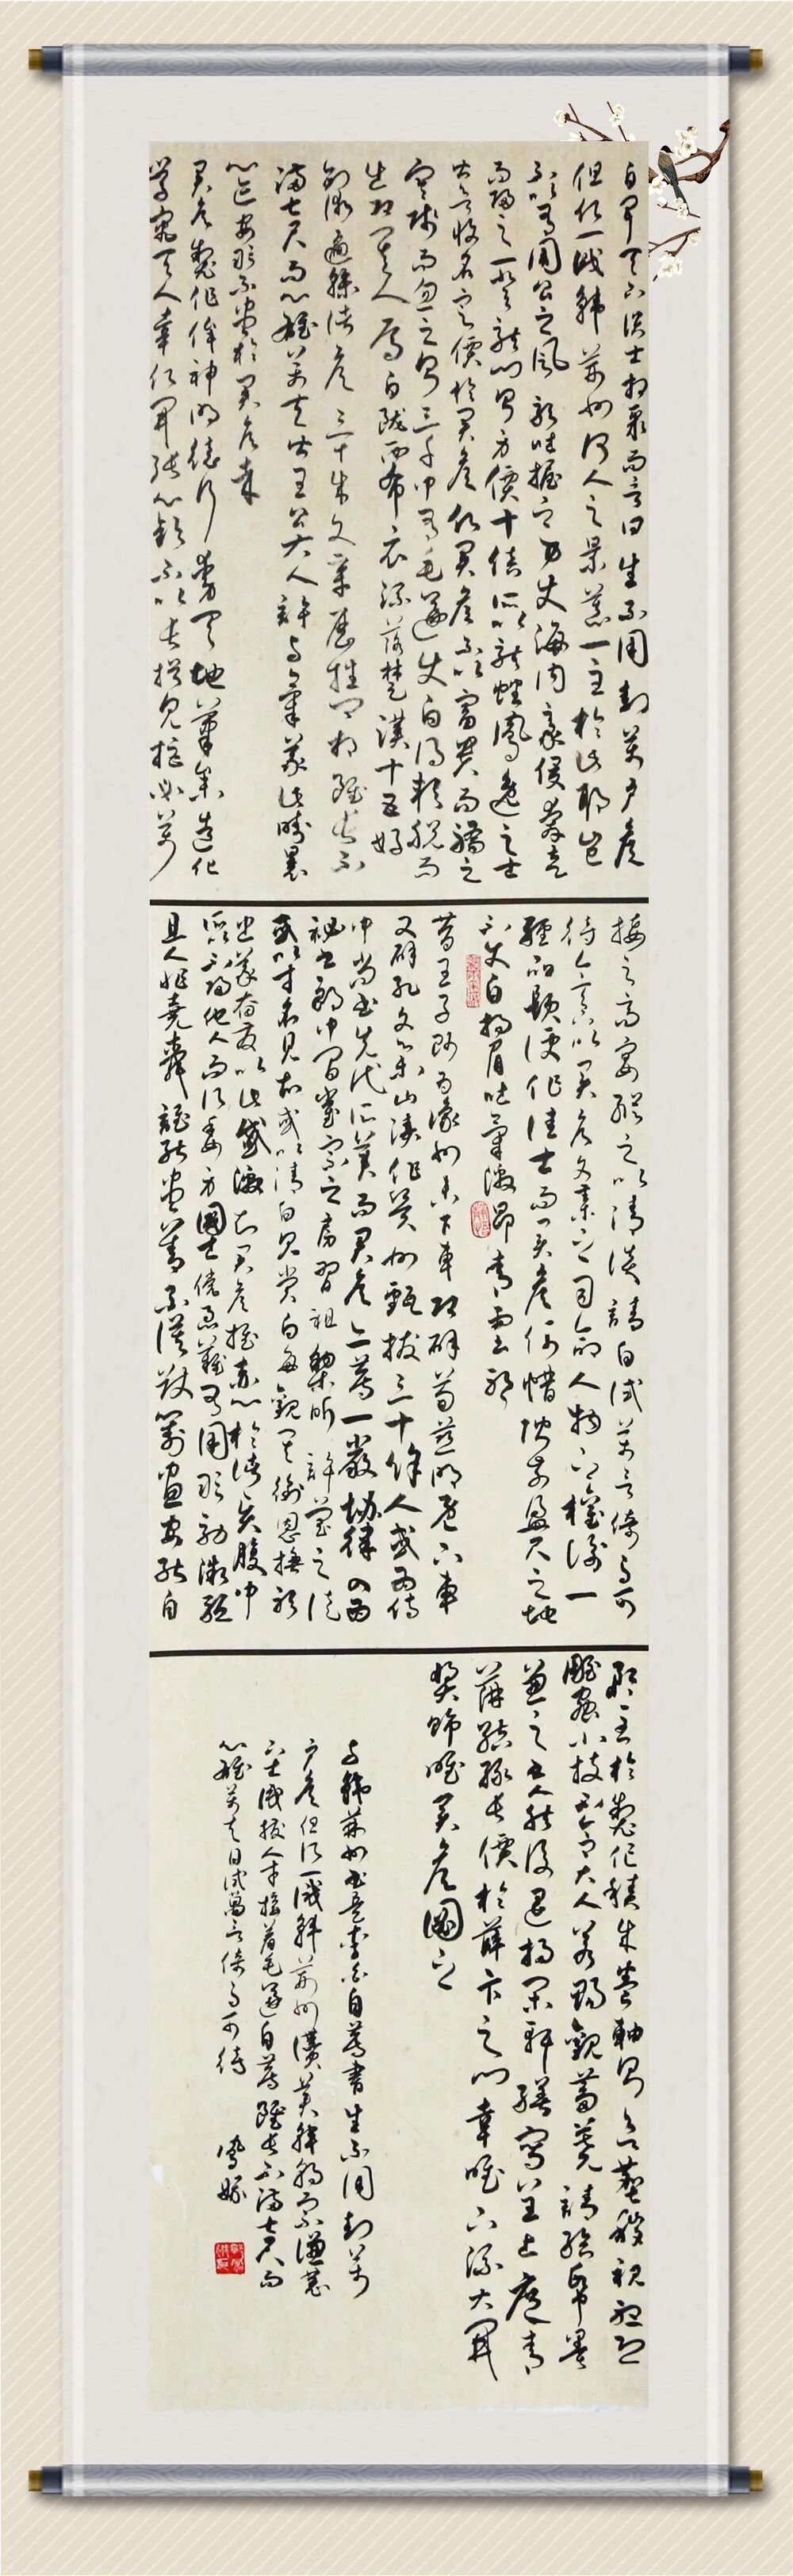 白聞天下談士相聚而言曰生不用封萬戶侯
但願一識韓荊州何人之景慕一至於此耶豈
不以有周公之風躬吐握之事使海內豪俊奔走
而歸之一登龍門則身價十倍所以龍蟠鳳逸之士
皆欲收名定價於君侯願君侯不以富貴而驕之
寒賤而忽之則三千中有毛遂使白得穎脫而
出即其人焉白隴西布衣流落楚漢十五好
劍術遍干諸侯三十成文章歷抵卿相雖長不
滿七尺而心雄萬夫皆王公大人許與氣義此疇曩
心跡安敢不盡於君侯幸
君侯製作侔神明德行動天地筆參造化
學究天人幸願開張心顏不以長揖見拒必若
接之高宴縱之以清談請日試萬言倚馬可
待今天下以君侯文章之司命人物之權衡一
經品題便作佳士而君侯何惜階前盈尺之地
不使白揚眉吐氣激昂青雲耶
昔王子師為豫州未下車即辟荀慈明既下車
又辟孔文舉山濤作冀州甄拔三十餘人或為侍
中尚書先代所美而君侯亦薦一嚴協律入為
秘書郎中間崔宗之房習祖黎昕許瑩之徒
或以才名見知或以清白見賞白每觀其銜恩撫躬
忠義奮發以此感激知君侯推赤心於諸賢腹中
所以不歸他人而願委身國士儻急難有用敢效微軀
且人非堯舜誰能盡善白謨猷籌畫安能自
矜至於製作積成卷軸則欲塵穢視聽恐
雕蟲小技不合大人若賜觀芻蕘請給紙墨
兼之書人然後退掃閑軒繕寫呈上庶青
萍結綠長價於薛卞之門幸唯下流大開
獎飾唯君侯圖之
與韓荊州書是李白自薦書生不用封萬
戶侯但願一識韓荊州讚美韓朝宗謙恭
下士識拔人才接著毛遂自薦雖長不滿七尺而
心雄萬夫日試萬言倚馬可待